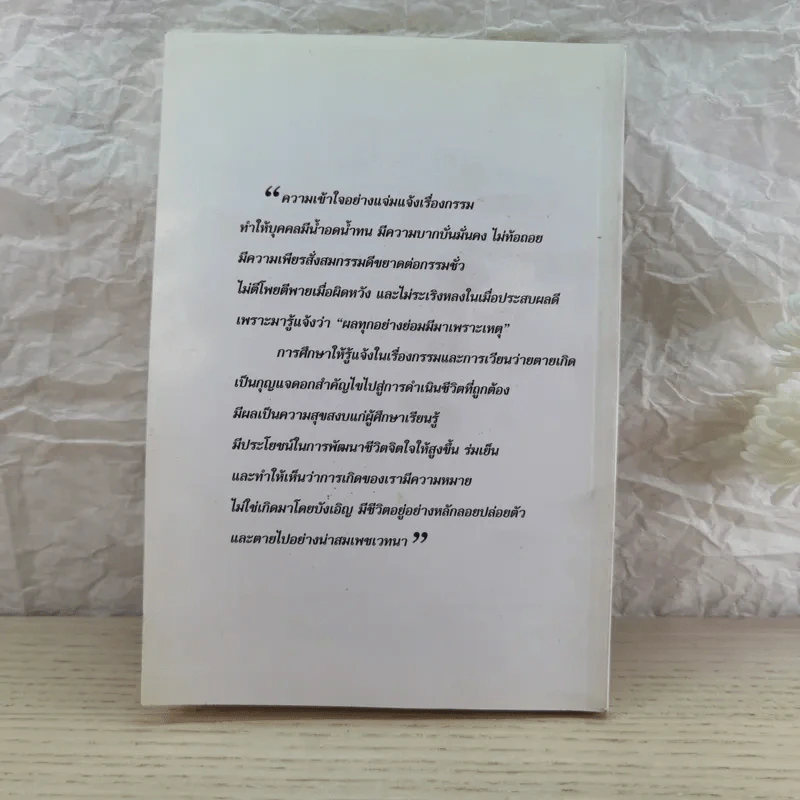 “ ความเข้าใจอย่างแจ่มแจ้งเรื่องกรรม
ทำให้บุคคลมีน้ำอดน้ำทน มีความบากบั่นมั่นคง ไม่ท้อถอย
มีความเพียรสั่งสมกรรมดีขยาดต่อกรรมชั่ว
ไม่ตีโพยตีพายเมื่อผิดหวัง และไม่ระเริงหลงในเมื่อประสบผลดี
เพราะมารู้แจ้งว่า “ผลทุกอย่างย่อมมีมาเพราะเหตุ”
การศึกษาให้รู้แจ้งในเรื่องกรรมและการเวียนว่ายตายเกิด
เป็นกุญแจดอกสำคัญไขไปสู่การดำเนินชีวิตที่ถูกต้อง
มีผลเป็นความสุขสงบแก่ผู้ศึกษาเรียนรู้
มีประโยชน์ในการพัฒนาชีวิตจิตใจให้สูงขึ้น ร่มเย็น
และทำให้เห็นว่าการเกิดของเรามีความหมาย
ไม่ใช่เกิดมาโดยบังเอิญ มีชีวิตอยู่อย่างหลักลอยปล่อยตัว
และตายไปอย่างน่าสมเพชเวทนา ”